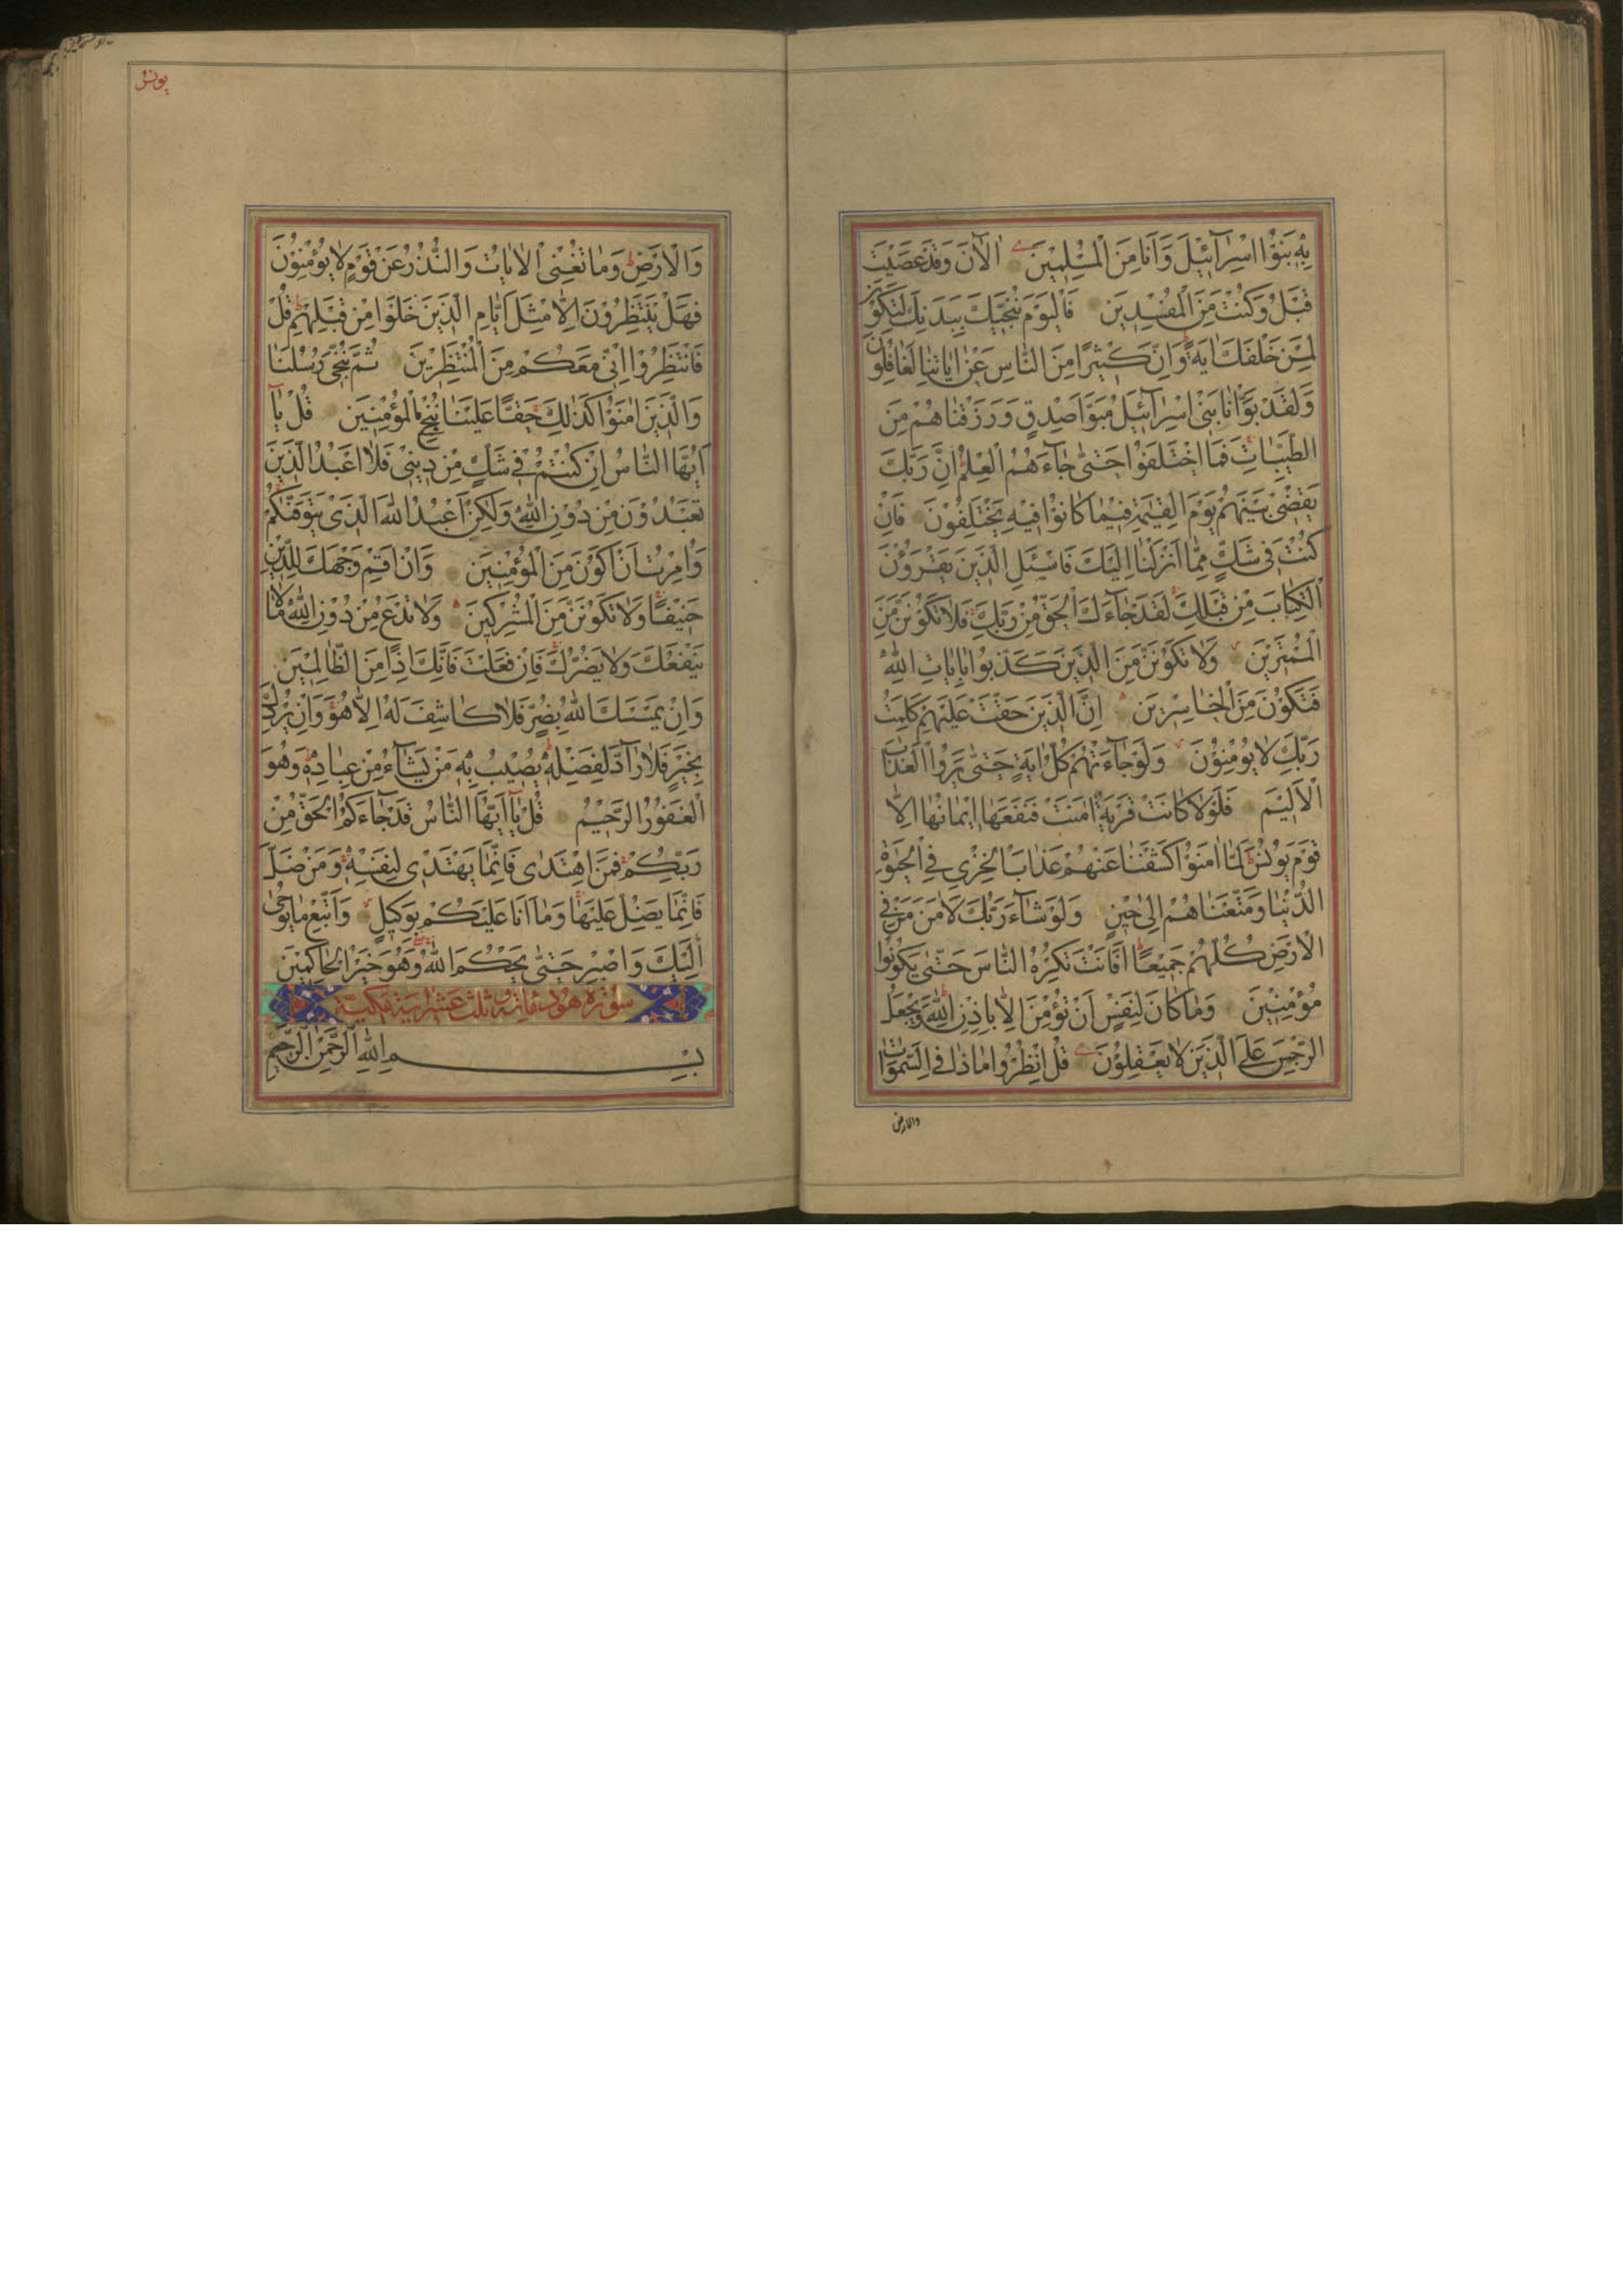 بِهِ بَنُوا اِسْرَآئيلَ وَاَنَا مِنَ الْمُسْلِمينَ اٰلْآنَ وَقَدْ عَصَيْتَ
قَبْلُ وَكُنْتَ مِنَ الْمُفْسِدينَ فَالْيَوْمَ نُنَجّيكَ بِبَدَنِكَ لِتَكُونَ
لِمَنْ خَلْفَكَ اٰيَةً وَاِنَّ كَثيرًا مِنَ النَّاسِ عَنْ اٰيَاتِنَا لَغَافِلُونَ
وَلَقَدْ بَوَّاْنَا بَنى اِسْرَآئيلَ مُبَوَّاَ صِدْقٍ وَرَزَقْنَاهُمْ مِنَ
الطَّيِّبَاتِ فَمَا اخْتَلَفُوا حَتّٰى جَآءَهُمُ الْعِلْمُ اِنَّ رَبَّكَ
يَقْضى بَيْنَهُمْ يَوْمَ الْقِيٰمَةِ فيمَا كَانُوا فيهِ يَخْتَلِفُونَ فَاِنْ
كُنْتَ فى شَكٍّ مِمَّا اَنْزَلْنَا اِلَيْكَ فَاسْئَلِ الَّذينَ يَقْرَؤُنَ
الْكِتَابَ مِنْ قَبْلِكَ لَقَدْ جَآءَكَ الْحَقُّ مِنْ رَبِّكَ فَلَا تَكُونَنَّ مِنَ
الْمُمْتَرينَ وَلَا تَكُونَنَّ مِنَ الَّذينَ كَذَّبُوا بِاٰيَاتِ اللّٰهِ
فَتَكُونَ مِنَ الْخَاسِرينَ اِنَّ الَّذينَ حَقَّتْ عَلَيْهِمْ كَلِمَتُ
رَبِّكَ لَا يُؤْمِنُونَ وَلَوْ جَآءَتْهُمْ كُلُّ اٰيَةٍ حَتّٰى يَرَوُا الْعَذَابَ
الْاَليمَ فَلَوْلَا كَانَتْ قَرْيَةٌ اٰمَنَتْ فَنَفَعَهَا ايمَانُهَا اِلَّا
قَوْمَ يُونُسَ لَمَّا اٰمَنُوا كَشَفْنَا عَنْهُمْ عَذَابَ الْخِزْىِ فِى الْحَيٰوةِ
الدُّنْيَا وَمَتَّعْنَاهُمْ اِلٰى حينٍ وَلَوْ شَآءَ رَبُّكَ لَاٰمَنَ مَنْ فِى
الْاَرْضِ كُلُّهُمْ جَميعًا اَفَاَنْتَ تُكْرِهُ النَّاسَ حَتّٰى يَكُونُوا
مُؤْمِنينَ وَمَا كَانَ لِنَفْسٍ اَنْ تُؤْمِنَ اِلَّا بِاِذْنِ اللّٰهِ وَيَجْعَلُ
الرِّجْسَ عَلَى الَّذينَ لَا يَعْقِلُونَ قُلِ انْظُرُوا مَاذَا فِى السَّمٰوَاتِ
والارض
يونس
وَالْاَرْضِ وَمَا تُغْنِى الْاٰيَاتُ وَالنُّذُرُ عَنْ قَوْمٍ لَا يُؤْمِنُونَ
فَهَلْ يَنْتَظِرُونَ اِلَّا مِثْلَ اَيَّامِ الَّذينَ خَلَوْا مِنْ قَبْلِهِمْ قُلْ
فَانْتَظِرُوا اِنّى مَعَكُمْ مِنَ الْمُنْتَظِرينَ ثُمَّ نُنَجّى رُسُلَنَا
وَالَّذينَ اٰمَنُوا كَذٰلِكَ حَقًّا عَلَيْنَا نُنْجِ الْمُؤْمِنينَ قُلْ يَآ
اَيُّهَا النَّاسُ اِنْ كُنْتُمْ فى شَكٍّ مِنْ دينى فَلَا اَعْبُدُ الَّذينَ
تَعْبُدُونَ مِنْ دُونِ اللّٰهِ وَلٰكِنْ اَعْبُدُ اللّٰهَ الَّذى يَتَوَفّٰيكُمْ
وَاُمِرْتُ اَنْ اَكُونَ مِنَ الْمُؤْمِنينَ وَاَنْ اَقِمْ وَجْهَكَ لِلدّينِ
حَنيفًا وَلَا تَكُونَنَّ مِنَ الْمُشْرِكينَ وَلَا تَدْعُ مِنْ دُونِ اللّٰهِ مَا لَا
يَنْفَعُكَ وَلَا يَضُرُّكَ فَاِنْ فَعَلْتَ فَاِنَّكَ اِذًا مِنَ الظَّالِمينَ
وَاِنْ يَمْسَسْكَ اللّٰهُ بِضُرٍّ فَلَا كَاشِفَ لَهُ اِلَّا هُوَ وَاِنْ يُرِدْكَ
بِخَيْرٍ فَلَا رَآدَّ لِفَضْلِهِ يُصيبُ بِهِ مَنْ يَشَآءُ مِنْ عِبَادِهِ وَهُوَ
الْغَفُورُ الرَّحيمُ قُلْ يَآ اَيُّهَا النَّاسُ قَدْ جَآءَكُمُ الْحَقُّ مِنْ
رَبِّكُمْ فَمَنِ اهْتَدٰى فَاِنَّمَا يَهْتَدى لِنَفْسِهِ وَمَنْ ضَلَّ
فَاِنَّمَا يَضِلُّ عَلَيْهَا وَمَا اَنَا عَلَيْكُمْ بِوَكيلٍ وَاتَّبِعْ مَا يُوحٰى
اِلَيْكَ وَاصْبِرْ حَتّٰى يَحْكُمَ اللّٰهُ وَهُوَ خَيْرُ الْحَاكِمينَ
سورة هود مائة وثلث عشر اية مكية
بِسْمِ اللّٰهِ الرَّحْمٰنِ الرَّحيمِ